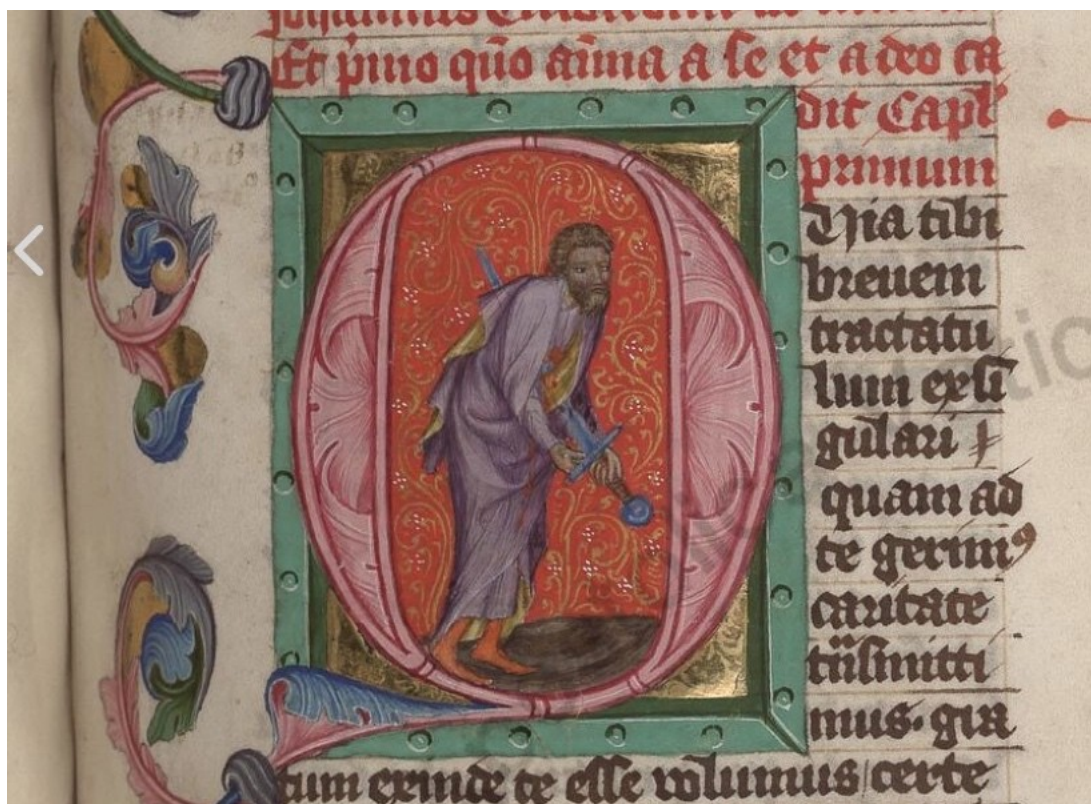 Et p̄mo quō aīma a se et a deo ca
dit Capl̄
primum
QUia tibi
breuem
tractatu
lum ex sī
gulari
quam ad
te gerimꝰ
caritate
tn̄smitti
mus. gra
tum exinde te esse volumus certe